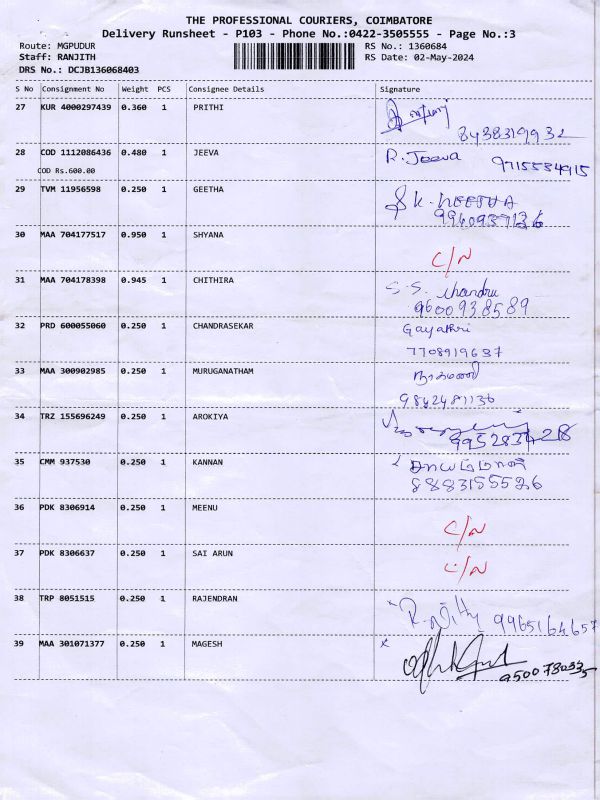 THE PROFESSIONAL COURIERS, COIMBATORE
Delivery Runsheet - P103 - Phone No.:0422-3505555 - Page No.:3
Route: MGPUDUR RS No.: 1360684
Staff: RANJITH RS Date: 02-May-2024
DRS No.: DCJB136068403
S No Consignment No Weight PCS Consignee Details Signature
27 KUR 4000297439 0.360 1 PRITHI
8438319932
28 COD 1112086436 0.480 1 JEEVA R. Jeeva 9715534915
COD Rs.600.00
29 TVM 11956598 0.250 1 GEETHA
9960937136
30 MAA 704177517 0.950 1 SHYANA C/N
31 MAA 704178398 0.945 1 CHITHIRA S.S. chandru
9600938589
32 PRD 600055060 0.250 1 CHANDRASEKAR Gayathri
7708919637
33 MAA 300902985 0.250 1 MURUGANATHAM
9842481136
34 TRZ 155696249 0.250 1 AROKIYA
35 CMM 937530 0.250 1 KANNAN
8883155526
36 PDK 8306914 0.250 1 MEENU C/N
37 PDK 8306637 0.250 1 SAI ARUN C/N
38 TRP 8051515 0.250 1 RAJENDRAN 9965164657
39 MAA 301071377 0.250 1 MAGESH